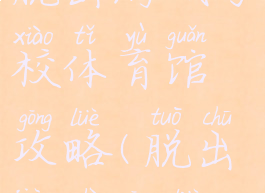 xiào tǐ yù guǎn
校体育馆
gōng lüè tuō chū
攻略(脱出